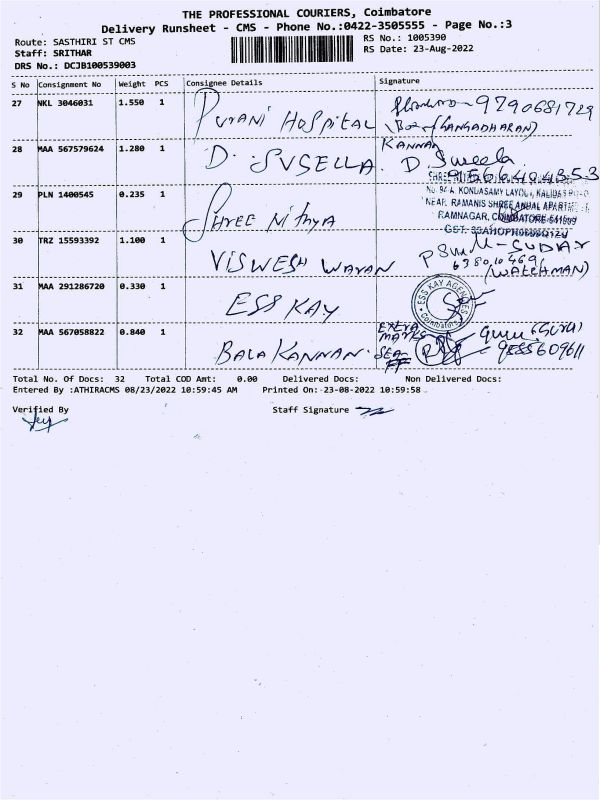 THE PROFESSIONAL COURIERS, Coimbatore
Delivery Runsheet - CMS - Phone No.:0422-3505555 - Page No.:3
Route: SASTHIRI ST CMS
RS No.: 1005390
Staff: SRITHAR
RS Date: 23-Aug-2022
DRS No.: DCJB100539003
S No Consignment No Weight PCS Consignee Details Signature
27 NKL 3046031 1.550 1 Purani Hospital 9790681729
(B/o Gangadharan)
28 MAA 567579624 1.280 1 D. Susella Kannan
D. Suseela
9566494353
29 PLN 1400545 0.235 1 Shree Nithya
KONDASAMY LAYOUT, KALIDAS
NEAR. RAMANIS SHREE ANJHAL
RAMNAGAR, COIMBATORE-641009
30 TRZ 15593392 1.100 1 Viswesh Waran M-SUDAR
(WATCHMAN)
31 MAA 291286720 0.330 1 ESS KAY ESS KAY AGENCIES
Coimbatore
32 MAA 567058822 0.840 1 Bala Kannan. Guru (Guru)
Total No. Of Docs: 32 Total COD Amt: 0.00 Delivered Docs: Non Delivered Docs:
Entered By :ATHIRACMS 08/23/2022 10:59:45 AM Printed On: 23-08-2022 10:59:58
Verified By Staff Signature